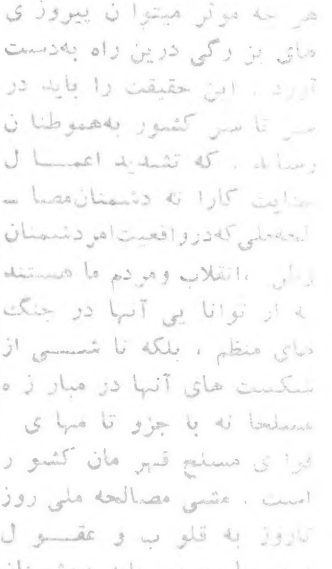 هر چه موثر میتوا ن پیروز ی
های بز رگی درین راه بهدست
آورد . این حقیقت را باید در
سر تا سر کشور بههموطنا ن
رساند . که تشدید اعمــا ل
جنایت کارا نه دشمنان مصا
لحه ملی که در واقعیت امر دشمنان
وطن ،انقلاب ومردم ما هستند
نه از توانا یی آنها در جنگ
های منظم ، بلکه نا شــی از
شکست های آنها در مبار ز ه
مسلحا نه با جزو تا مها ی
قوا ی مسلح قهر مان کشو ر
است . مشی مصالحه ملی روز
تاروز به قلو ب و عقــو ل